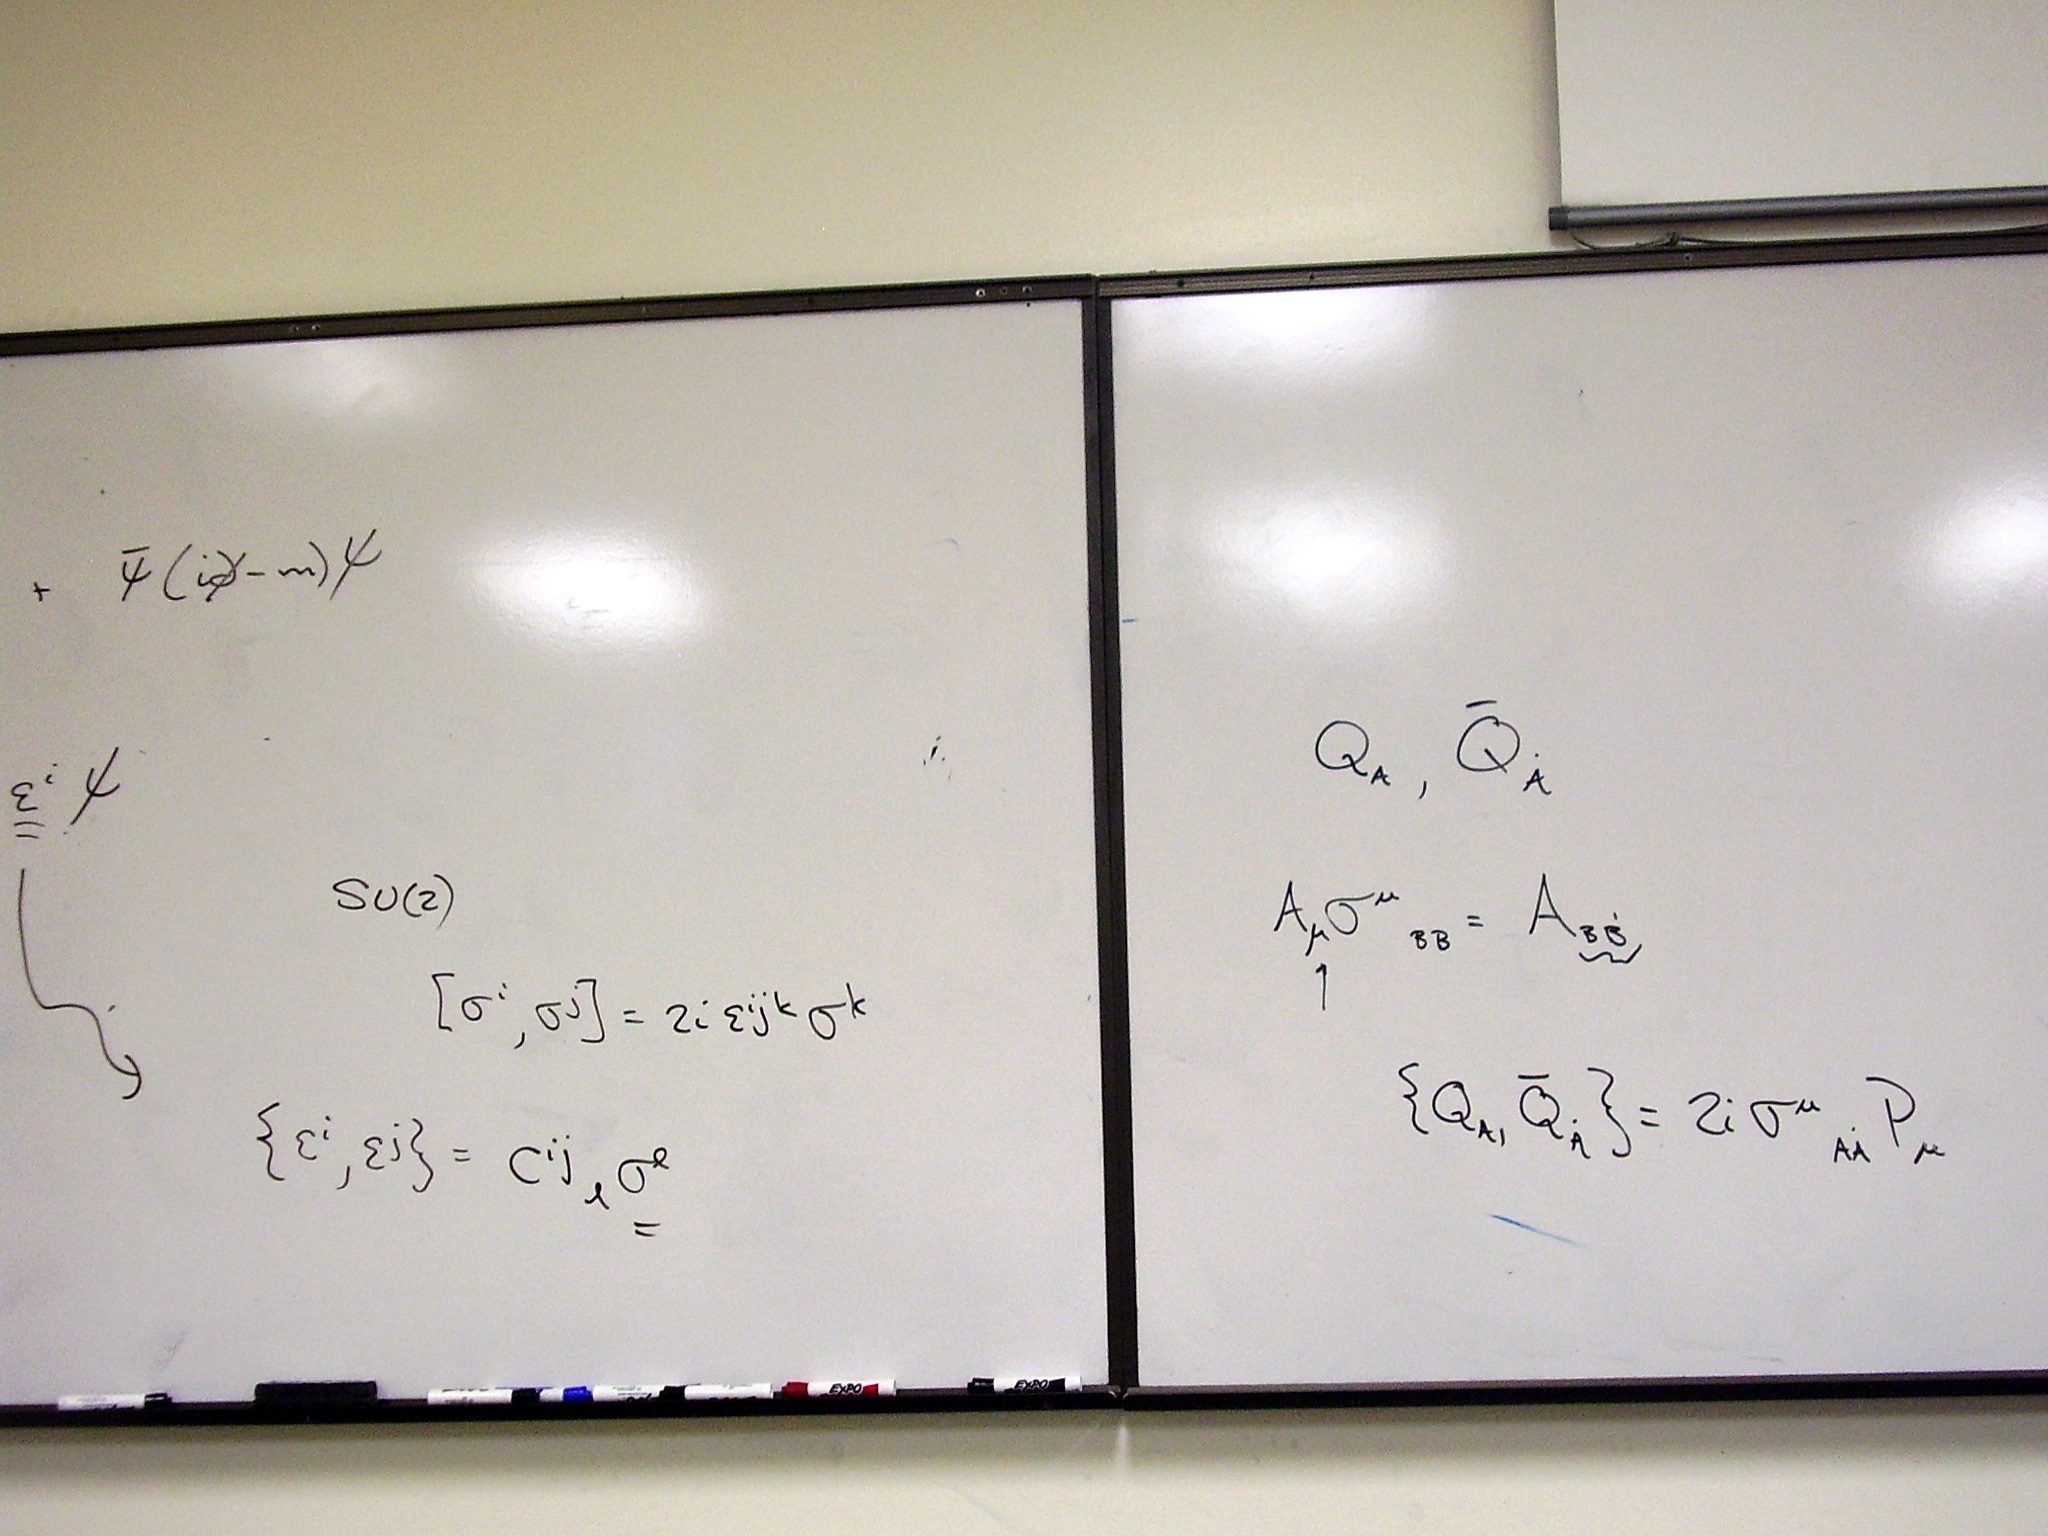 + ψ̄(i∂̸-m)ψ
εⁱ ψ
SU(2)
[σⁱ, σʲ] = 2i εⁱʲᵏ σᵏ
{εⁱ, εʲ} = Cⁱʲₗ σˡ
Q_A, Q̄_Ȧ
A_μ σ^μ_BB = A_BḂ
↑
{Q_A, Q̄_Ȧ} = 2i σ^μ_AȦ P_μ
EXPO
EXPO